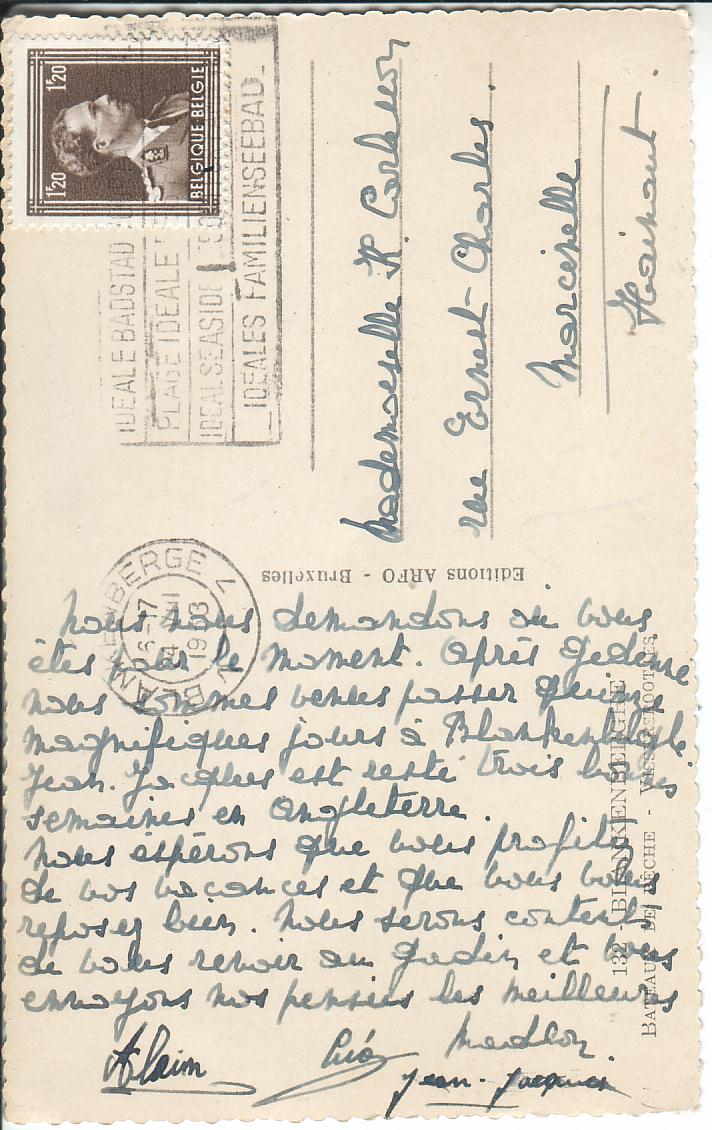 1F20
1F20
BELGIQUE BELGIE
IDEALE BADSTAD
PLAGE IDEALE
IDEAL SEASIDE
IDEALES FAMILIENSEEBAD
BLANKENBERGE
16-17
1953
Mademoiselle
rue Ernest Charles.
Marcinelle
Hainaut.
Editions ARFO - Bruxelles
132 - BLANKENBERGHE
BATEAUX DE PÊCHE - VISSERSBOOTJES
Nous nous demandons où vous
êtes pour le moment. Après Gedinne
nous sommes venus passer quinze
magnifiques jours à Blankenberghe
Jean-Jacques est resté trois bonnes
semaines en Angleterre.
Nous espérons que vous profitez
de vos vacances et que vous vous
reposez bien. Nous serons contents
de vous revoir au et vous
envoyons nos pensées les meilleures
Alain
Jean-Jacques